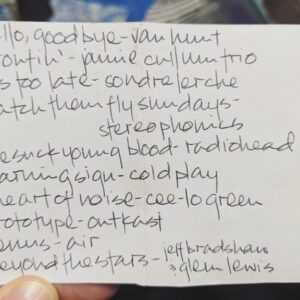 llo, goodbye-van hunt
ontin'- jamie cullum trio
s too late-sondre lerche
atch them fly sundays-
stereophonics
esuck young blood- radiohead
arning sign- coldplay
heart of noise-cee-lo green
rototype-outkast
enus-air
eyond the stars- jeff bradshaw
& glenn lewis